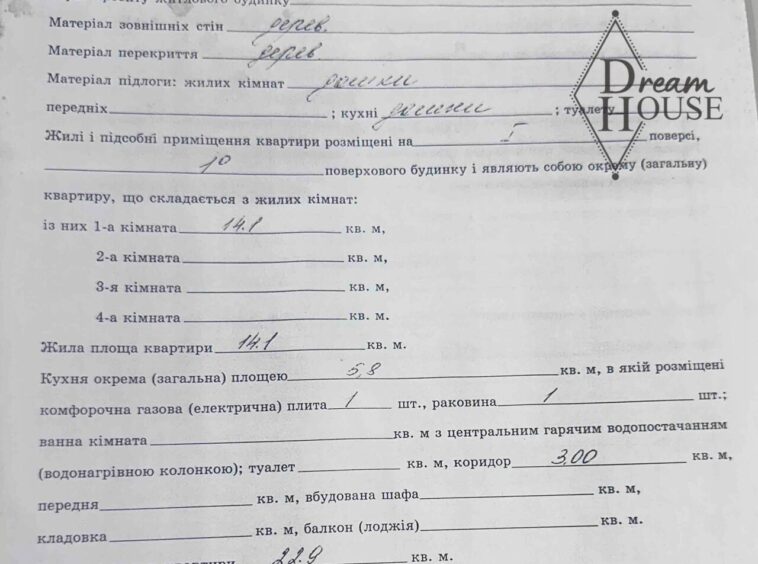 житлового будинку
Матеріал зовнішніх стін дерев.
Матеріал перекриття дерев.
Матеріал підлоги: жилих кімнат дошки
передніх ; кухні дошки ; туалету
Жилі і підсобні приміщення квартири розміщені на I поверсі,
10 поверхового будинку і являють собою окрему (загальну)
квартиру, що складається з жилих кімнат:
із них 1-а кімната 14.1 кв. м,
2-а кімната кв. м,
3-я кімната кв. м,
4-а кімната кв. м.
Жила площа квартири 14.1 кв. м.
Кухня окрема (загальна) площею 5,8 кв. м, в якій розміщені
комфорочна газова (електрична) плита 1 шт., раковина 1 шт.;
ванна кімната кв. м з центральним гарячим водопостачанням
(водонагрівною колонкою); туалет кв. м, коридор 3,00 кв. м,
передня кв. м, вбудована шафа кв. м,
кладовка кв. м, балкон (лоджія) кв. м.
22.9 кв. м.
Dream
HOUSE